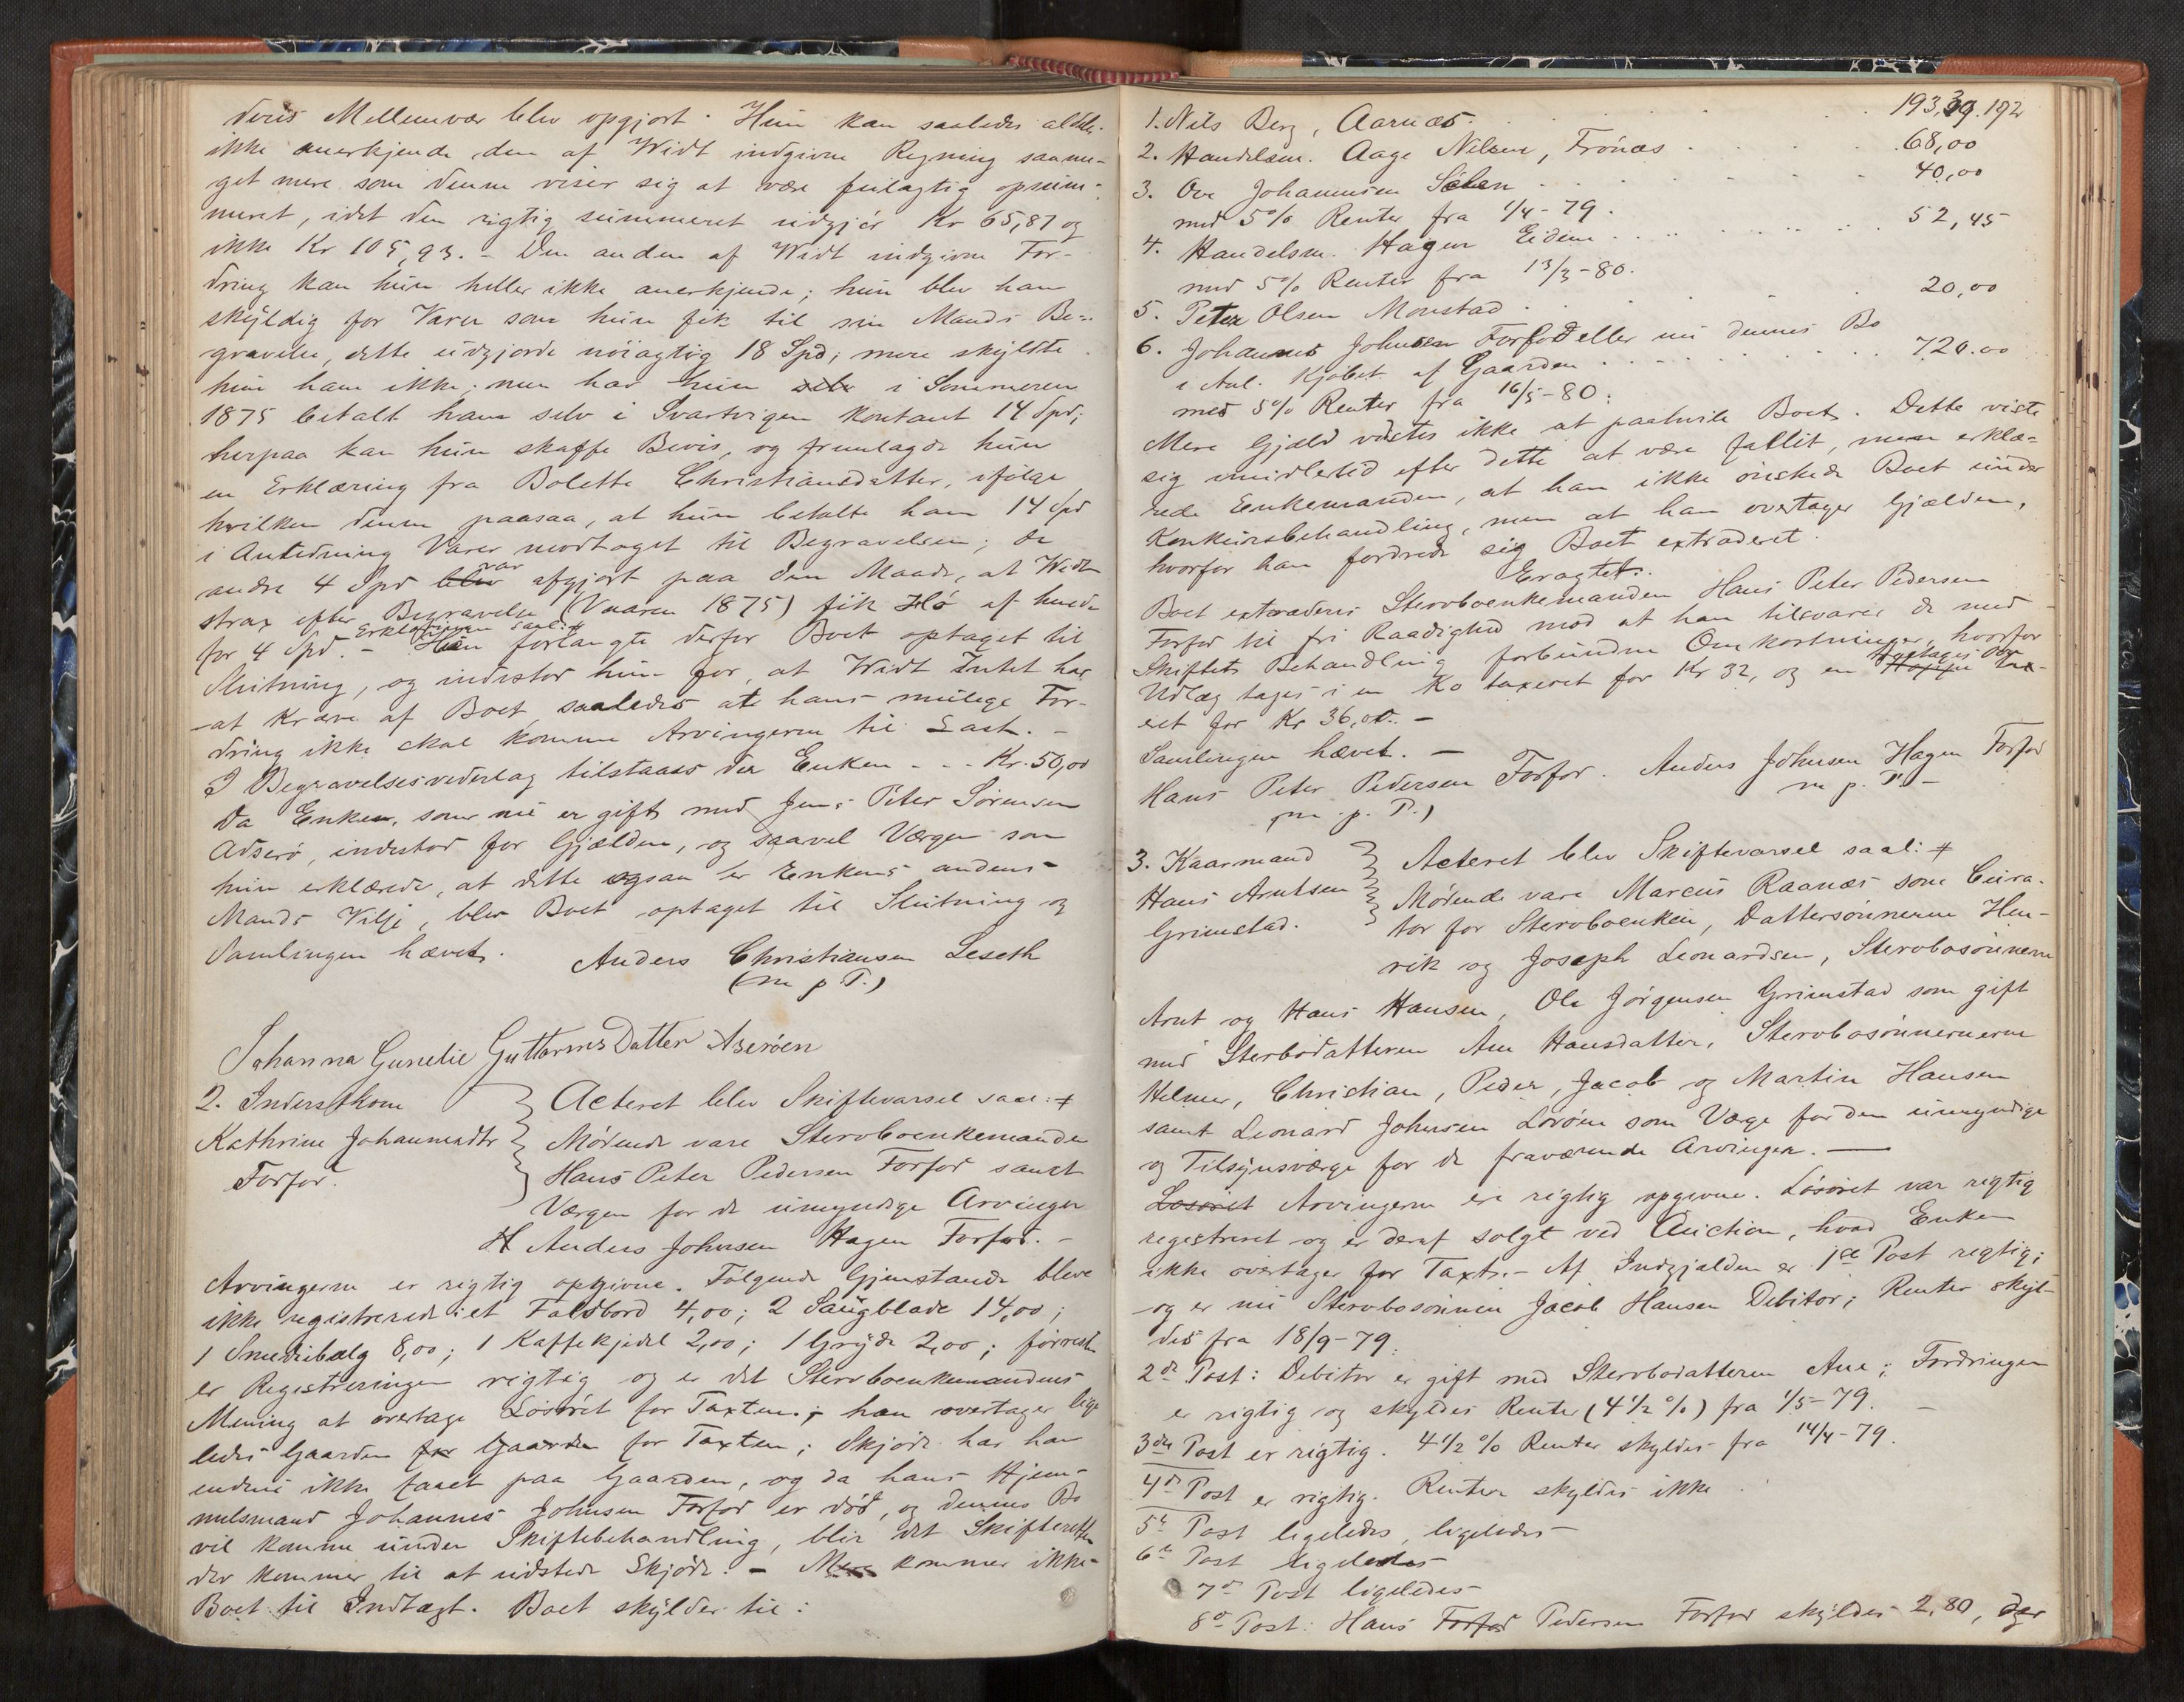 deres Mellemvær blev opgjort. Hun kan saaledes aldeles
ikke anerkjende den af Widt indgivne Regning saame-
get mere som denne viser sig at være feilagtig opsum-
meret, idet den rigtig summeret udgjør Kr 65,87 og
ikke Kr 105,93. - Den anden af Widt indgivne For-
dring kan hun heller ikke anerkjende; hun blev ham
skyldig for Varer som hun fik til sin Mands Be-
gravelse, dette udgjorde nøiagtig 18 Spd; mere skyldte
hun ham ikke; men har hun i Sommeren
1875 betalt ham selv i Svartvigen kontant 14 Spd;
herpaa kan hun skaffe Bevis, og fremlagde hun
en Erklæring fra Bolette Christiansdatter, ifølge
hvilken denne paasaa, at hun betalte ham 14 Spd
i Anledning Varer modtaget til Begravelsen; de
andre 4 Spd blev var afgjort paa den Maade, at Widt
strax efter Begravelsen (Vaaren 1875) fik Hø af hende
for 4 Spd. - Erklæringen saal: # Hun forlangte derfor Boet optaget til
Slutning, og indestod hun for, at Widt Intet har
at kræve af Boet, saaledes at hans mulige For-
dring ikke skal komme Arvingerne til Last. -
I Begravelsesvederlag tilstaaes der Enken - - Kr. 50,00
Da Enken, som nu er gift med Jens Peter Sørensen
Adserø, indestod for Gjælden, og saavel Værgen som
hun erklærede, at dette ogsaa er Enkens anden
Mands Vilje, blev Boet optaget til Slutning og
Samlingen hævet.
Anders Christiansen Leseth
(m p P.)
Johanna Gurelie GuttormsDatter Aserøen
2. Indersthone
Kathrine Johannesdtr
Forfod.
Acteret blev Skiftevarsel saal: #
Mødende vare Stervboenkemanden
Hans Peter Pedersen Forfod samt
Værgen for de umyndige Arvinger
H Anders Johnsen Hagen Forfod. -
Arvingerne er rigtig opgivne. Følgende Gjenstande bleve
ikke registreret: et Foldbord 4,00; 2 Saugblade 14,00;
1 Smediebælg 8,00; 1 Kaffekjedel 2,00; 1 Gryde 2,00; forresten
er Registreringen rigtig og er det Stervboenkemandens
Mening at overtage Løsøret for Taxten; han overtager lige
ledes Gaarden for Gaarden for Taxten; Skjøde har han
endnu ikke faaet paa Gaarden, og da hans Hjem-
melsmand Johannes Johnsen Forfod er død, og dennes Bo
vil komme under Skiftebehandling, blir det Skifteretten
der kommer til at udstede Skjøde. - Mere kommer ikke
Boet til Indtægt. Boet skylder til:
192
1. Nils Berg, Aarnæs . . . . . 193,39
2. Handelsm. Aage Nilsen, Frønæs . . . . 68,00
3. Ove Johannesen Sælen . . . . 40,00
med 5% Renter fra 1/4-79.
4. Handelsm. Hagen Eidem . . . . 52,45
med 5% Renter fra 13/3-80.
5. Peter Olsen Monstad . . . . 20,00
6. Johannes Johnsen Forfod eller nu dennes Bo
i Anl. Kjøbet af Gaarden . . . . 720.00
med 5% Renter fra 16/5-80.
Mere Gjæld vistes ikke at paahvile Boet. Dette viste
sig imidlertid efter dette at være fallit, men erklæ-
rede Enkemanden, at han ikke ønskede Boet under
Konkursbehandling, men at han overtager Gjælden,
hvorfor han fordrede sig Boet extraderet.
Eragtet:
Boet extraderes Stervboenkemanden Hans Peter Pedersen
Forfod til fri Raadighed mod at han tilsvarer de med
Skiftets Behandling forbundne Omkostninger, hvorfor
Udlæg tages i en Ko taxeret for Kr 32, og en Hoppe tax-
eret for Kr 36,00. -
Samlingen hævet. -
Hans Peter Pedersen Forfod. Anders Johnsen Hagen Forfod
(m. p. P.) m p. P. -
3. Kaarmand
Hans Arntsen
Grimstad.
Acteret blev Skiftevarsel saal: #
Mødende vare Marcus Raanæs som Cura-
tor for Stervboenken, Dattersønnerne Hen-
rik og Joseph Leonardsen, Stervbosønnerne
Arnt og Hans Hansen, Ole Jørgensen Grimstad som gift
med Sterbodatteren Ane Hansdatter, Stervbosønnernerne
Helmer, Christian, Peder, Jacob og Martin Hansen
samt Leonard Johnsen Lorøen som Værge for den umyndige
og Tilsynsværge for de fraværende Arvinger. -
Løsøret Arvingerne er rigtig opgivne. Løsøret var rigtig
registreret og er deraf solgt ved Auction, hvad Enken
ikke overtager for Taxten. - Af Indgjælden er 1ste Post rigtig;
og er nu Stervbosønnen Jacob Hansen Debitor; Renter skyl-
des fra 18/9-79.
2de Post: Debitor er gift med Stervbodatteren Ane; Fordringen
er rigtig og skyldes Renter (4 1/2 %) fra 1/5-79. -
3die Post er rigtig. 4 1/2 % Renter skyldes fra 14/4-79.
4de Post er rigtig. Renter skyldes ikke
5te Post ligeledes, ligeledes
6te Post ligeledes
7de Post ligeledes
8de Post: Hans Forfod Pedersen Forfod skyldes 2,80, der